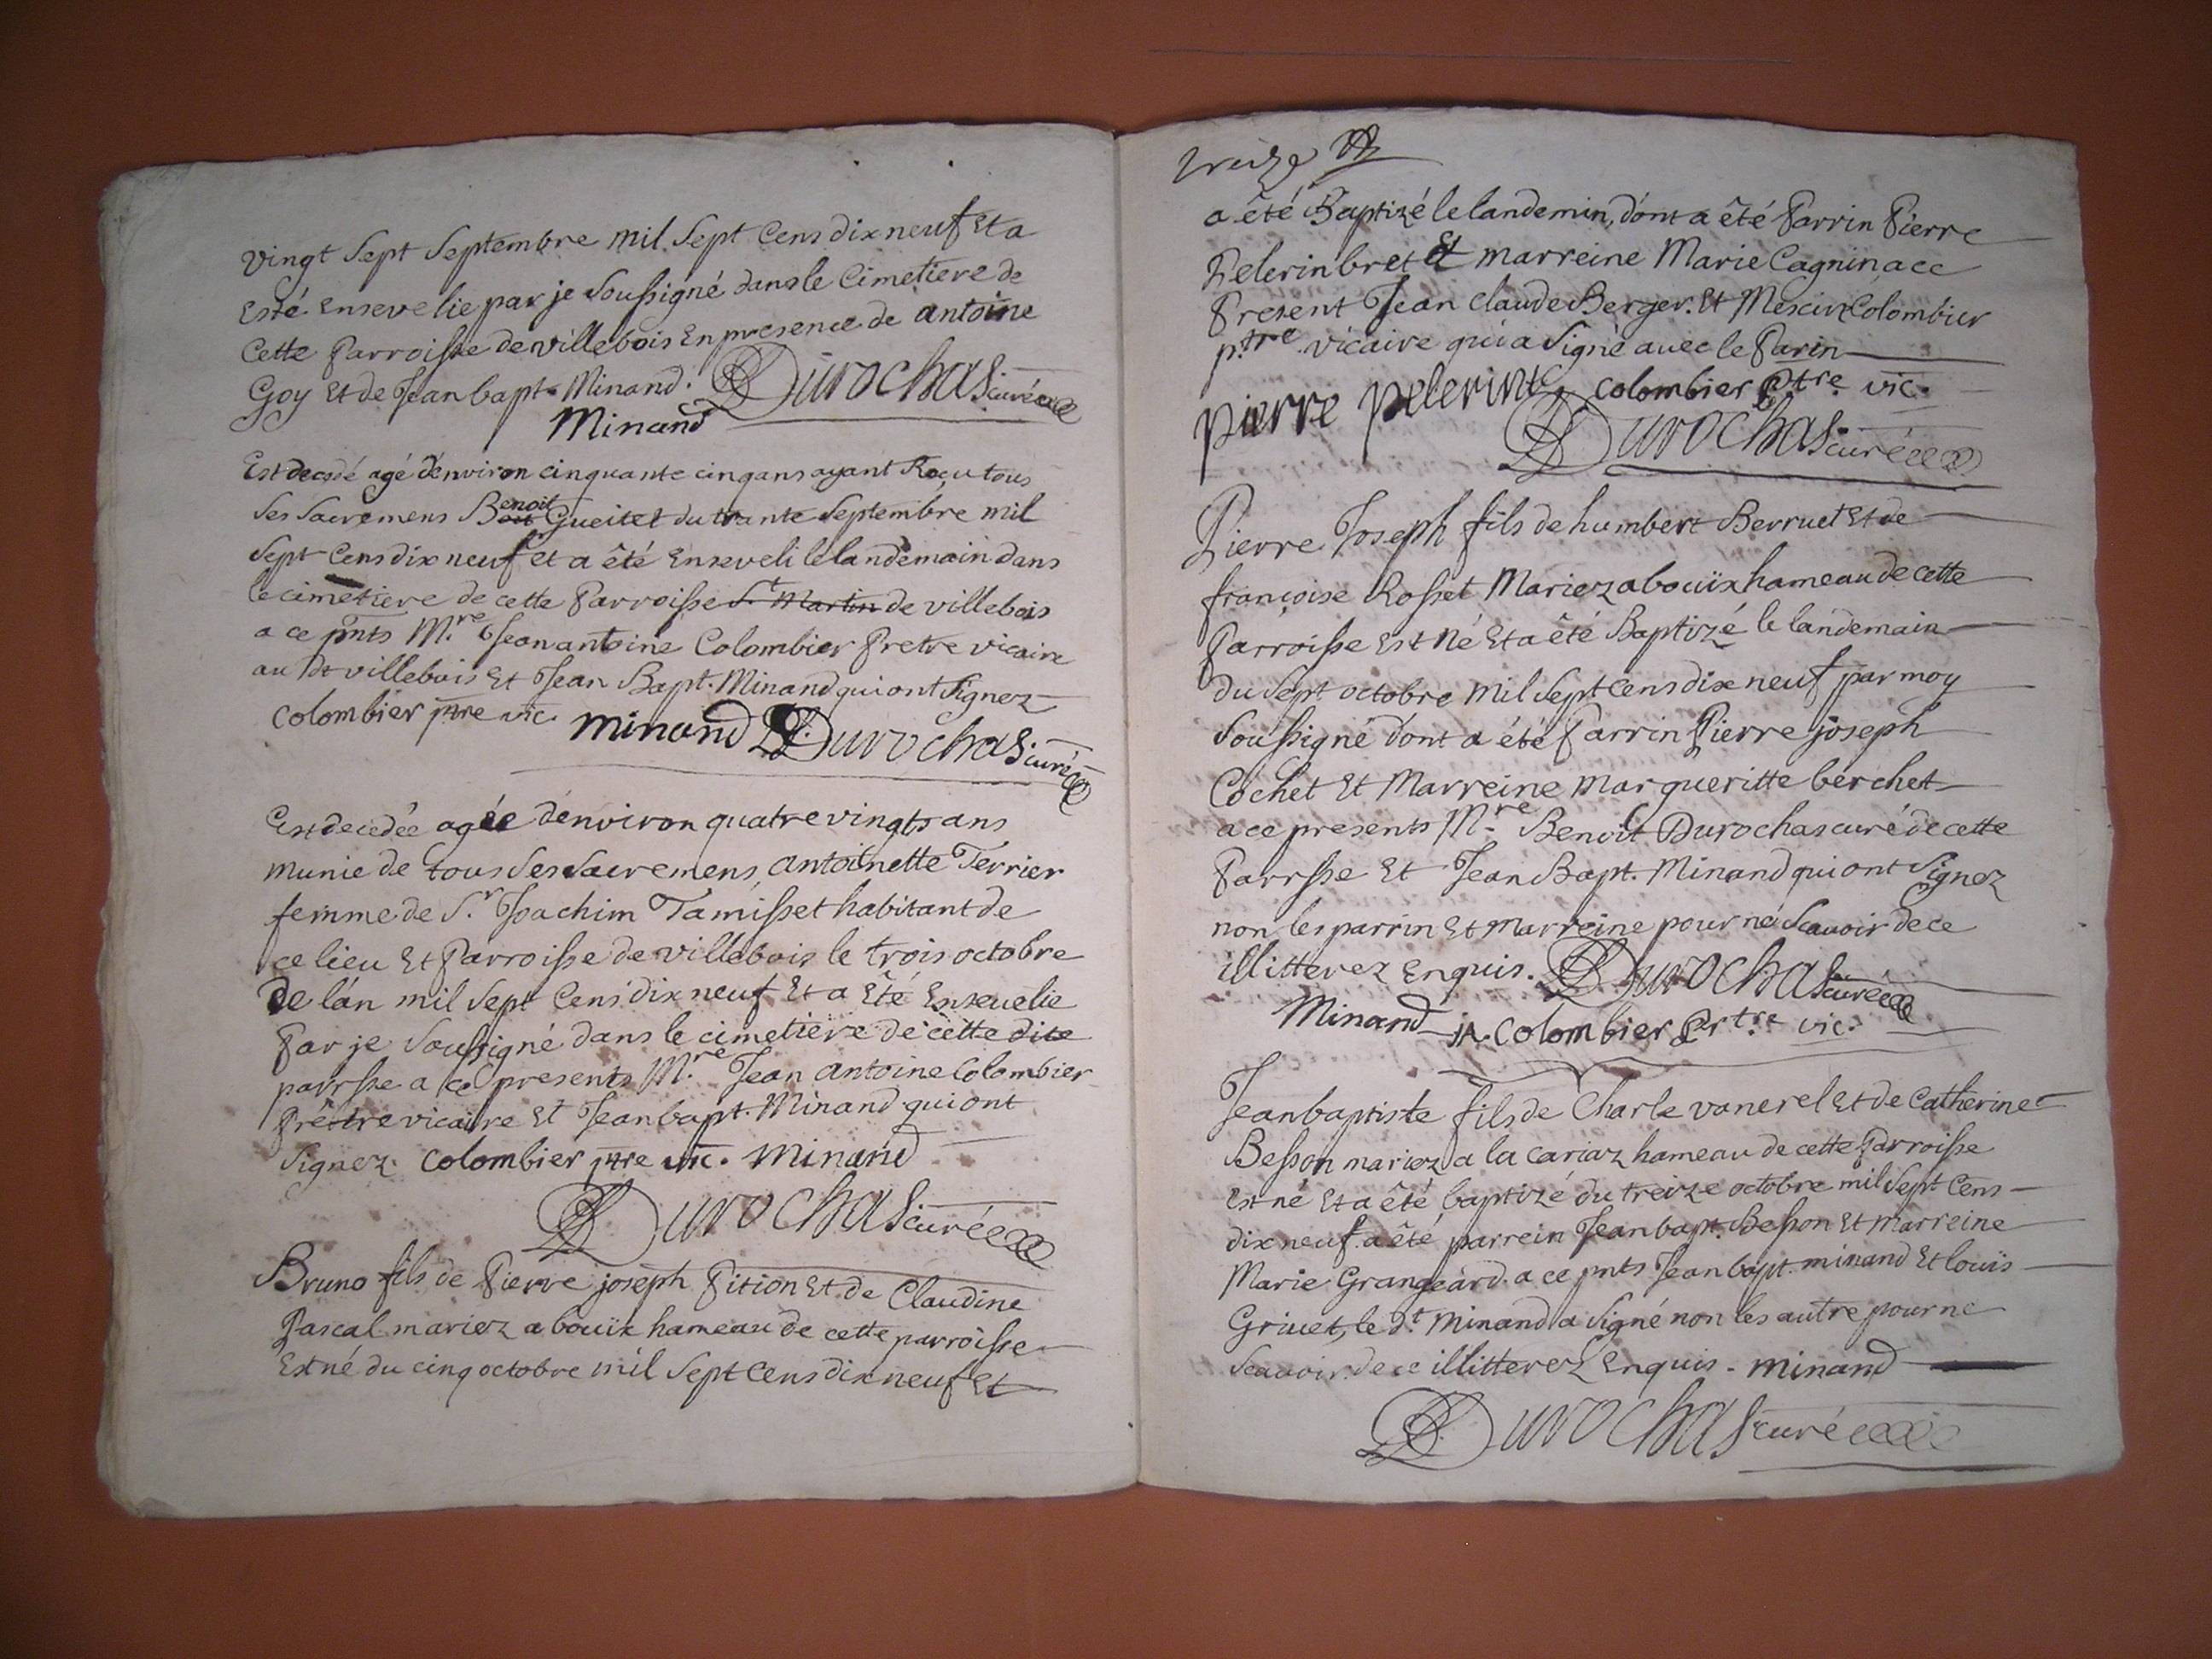 vingt sept septembre mil sept cens dix neuf Et a
Esté Ensevelie par je soussigné dans le Cimetiere de
Cette Parroisse de villebois En presence de antoine
Goy Et de Jean bapt. Minand. Durochas curé
Minand
Est decedé agé d'environ cinquante cinq ans ayant Reçu tous
ses sacremens Benoit Gueitet du trante septembre mil
sept cens dix neuf et a êté Enseveli le landemain dans
le cimetiere de cette Parroisse St Martin de villebois
a ce pnts Mre Jean antoine Colombier Pretre vicaire
au dt villebois Et Jean Bapt. Minand qui ont signez
Colombier ptre vic. Minand Durochas curé
Est decedée agée d'environ quatre vingts ans
munie de tous ses sacremens antoinette Terrier
femme de Sr Joachim Tamisset habitant de
ce lieu Et Parroisse de villebois le trois octobre
De l'an mil sept Cens dix neuf Et a Eté Ensevelie
Par je soussigné dans le cimetiere de cette dite
parrsse a ce presents Mre Jean antoine Colombier
Prêttre vicaire Et Jean bapt. Minand qui ont
signez. Colombier ptre vic. Minand
Durochas curé
Bruno fils de Pierre joseph Pition Et de Claudine
Pascal mariez a bouix hameau de cette parroisse
Est né du cinq octobre mil sept Cens dix neuf Et
treize
a êté Baptizé le landemin, dont a êté Parrin Pierre
Pelerin bret Et marreine Marie Cagnin a ce
Present Jean claude Berger. Et Messire Colombier
ptre vicaire qui a signé avec le Parin
pierre pelerint Colombier Ptre vic.
Durochas curé
Pierre Joseph fils de humbert Berruet Et de
françoise Rosset Mariez a bouix hameau de cette
Parroisse Est Né Et a êté Baptizé le landemain
du sept octobre mil sept cens dix neuf par moy
soussigné dont a été Parrin Pierre joseph
Cochet Et Marreine margueritte berchet
a ce presents Mre Benoit Durochas curé de cette
Parrsse Et Jean Bapt. Minand qui ont signez
non les parrin Et marreine pour ne scavoir de ce
illitterez enquis. Durochas curé
Minand JA. Colombier Prtre vic.
Jean baptiste fils de Charle vanerel Et de Catherine
Besson mariez a la cariaz hameau de cette Parroisse
Est né Et a êté baptizé du treize octobre mil sept Cens
dix neuf. a êté parrein Jean bapt. Besson Et marreine
Marie Grangeard. a ce pnts Jean bapt minand Et louis
Grivet, le dt Minand a signé non les autre pour ne
scavoir de ce illitterez Enquis. Minand
Durochas curé